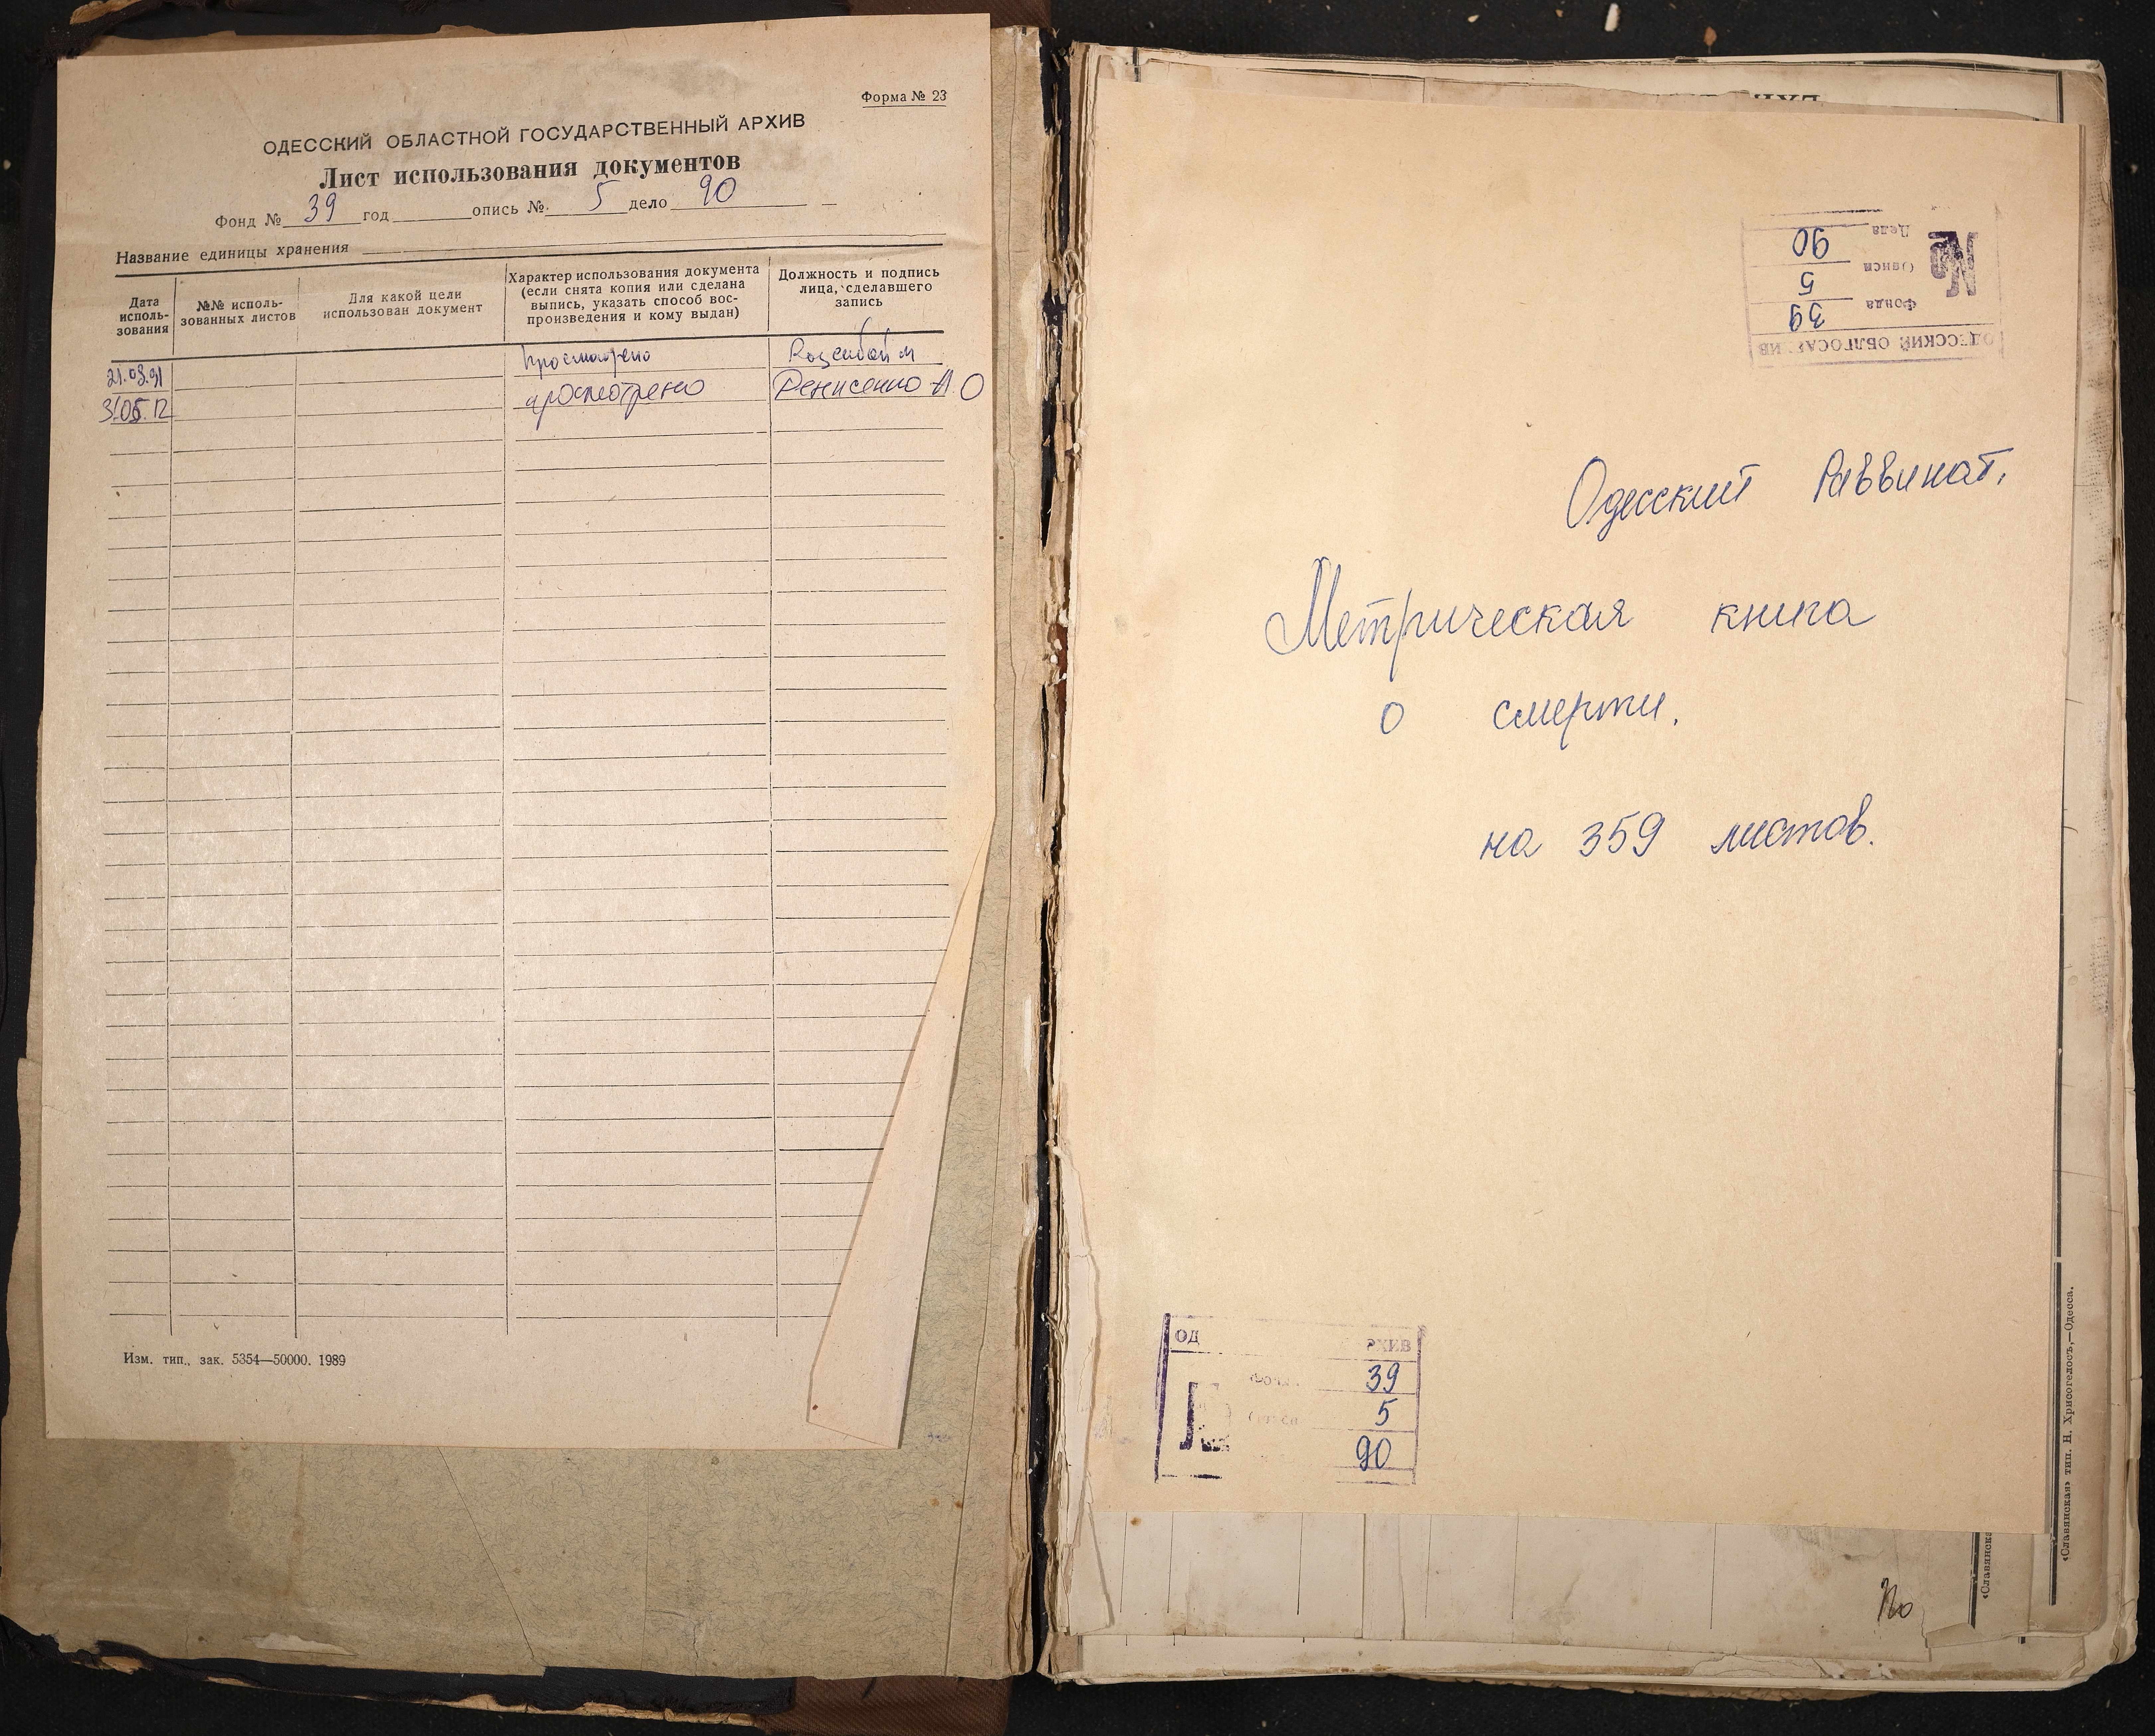 Форма № 23
ОДЕССКИЙ ОБЛАСТНОЙ ГОСУДАРСТВЕННЫЙ АРХИВ
Лист использования документов
Фонд № 39 год опись № 5 дело 90
Название единицы хранения
Дата исполь-зования
№№ исполь-зованных листов
Для какой цели использован документ
Характер использования документа (если снята копия или сделана выпись, указать способ вос-произведения и кому выдан)
Должность и подпись лица, сделавшего запись
21.03.91 просмотрено
31.05.12 просмотрено Денисенко А.О
Изм. тип., зак. 5354—50000. 1989
ОДЕССКИЙ ОБЛГОСАРХИВ
№
Фонда 39
Описи 5
Дела 90
Одесский Раввинат.
Метрическая книга
о смерти.
на 359 листов.
ОД РХИВ
39
5
90
«Славянская» тип. Н. Хрисогелосъ,—Одесса.
«Славянска